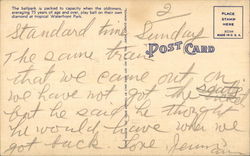 The ballpark is packed to capacity when the oldtimers,
averaging 75 years of age and over, play ball on their own
diamond at tropical Waterfront Park.
PLACE
STAMP
HERE
MADE IN U.S.A.
POST CARD
2
Standard time Sunday
The same train
that we came out on
we have not got the
but he said he thought
he would have when we
got back. Love